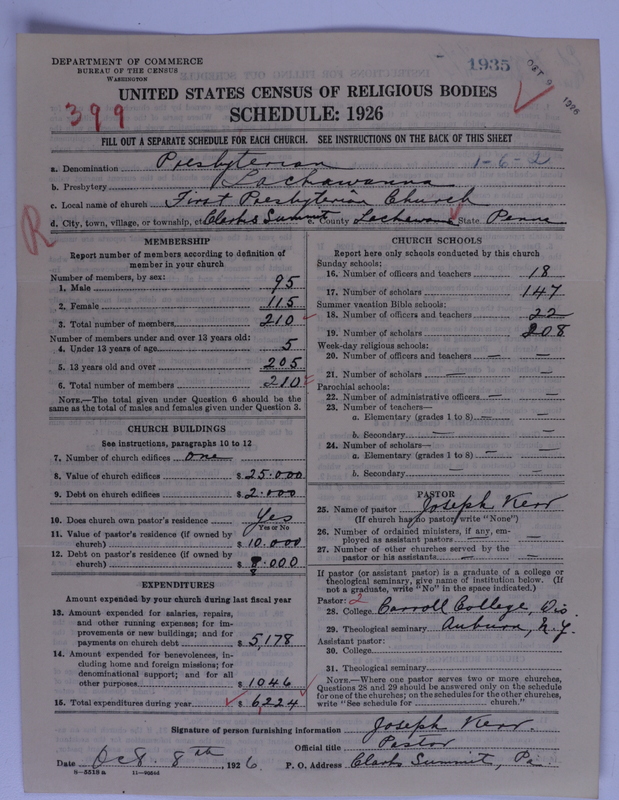 DEPARTMENT OF COMMERCE
BUREAU OF THE CENSUS
WASHINGTON
1935
OCT 9 1926
UNITED STATES CENSUS OF RELIGIOUS BODIES
399
SCHEDULE: 1926
FILL OUT A SEPARATE SCHEDULE FOR EACH CHURCH. SEE INSTRUCTIONS ON THE BACK OF THIS SHEET
a. Denomination Presbyterian 1-6-2
b. Presbytery Lachawanna
c. Local name of church First Presbyterian Church
d. City, town, village, or township, etc Clarks Summit e. County Lackawana State Penna
R
MEMBERSHIP
Report number of members according to definition of
member in your church
Number of members, by sex:
1. Male 95
2. Female 115
3. Total number of members 210
Number of members under and over 13 years old:
4. Under 13 years of age 5
5. 13 years old and over 205
6. Total number of members 210
NOTE.—The total given under Question 6 should be the
same as the total of males and females given under Question 3.
CHURCH BUILDINGS
See instructions, paragraphs 10 to 12
7. Number of church edifices one
8. Value of church edifices $ 25.000
9. Debt on church edifices $ 2.000
10. Does church own pastor's residence Yes
Yes or No
11. Value of pastor's residence (if owned by
church) $ 10.000
12. Debt on pastor's residence (if owned by
church) $ 8.000
EXPENDITURES
Amount expended by your church during last fiscal year
13. Amount expended for salaries, repairs,
and other running expenses; for im-
provements or new buildings; and for
payments on church debt $ 5,178
14. Amount expended for benevolences, in-
cluding home and foreign missions; for
denominational support; and for all
other purposes $ 1046
15. Total expenditures during year $ 6,224
CHURCH SCHOOLS
Report here only schools conducted by this church
Sunday schools:
16. Number of officers and teachers 18
17. Number of scholars 147
Summer vacation Bible schools:
18. Number of officers and teachers 22
19. Number of scholars 208
Week-day religious schools:
20. Number of officers and teachers — —
21. Number of scholars — —
Parochial schools:
22. Number of administrative officers — —
23. Number of teachers—
a. Elementary (grades 1 to 8) — —
b. Secondary — —
24. Number of scholars—
a. Elementary (grades 1 to 8) — —
b. Secondary — —
PASTOR
25. Name of pastor Joseph Kerr
(If church has no pastor, write "None")
26. Number of ordained ministers, if any, em-
ployed as assistant pastors — —
27. Number of other churches served by the
pastor or his assistants — —
If pastor (or assistant pastor) is a graduate of a college or
theological seminary, give name of institution below. (If
not a graduate, write "No" in the space indicated.)
Pastor: 2
28. College Carroll College, Wis
29. Theological seminary Auburn, N.Y.
Assistant pastor:
30. College
31. Theological seminary
NOTE.—Where one pastor serves two or more churches,
Questions 28 and 29 should be answered only on the schedule
for one of the churches; on the schedules for the other churches,
write "See schedule for church."
Signature of person furnishing information Joseph Kerr.
Official title Pastor
Date Oct. 8th, 1926. P. O. Address Clarks Summit, Pa
8—5518a 11—9094d